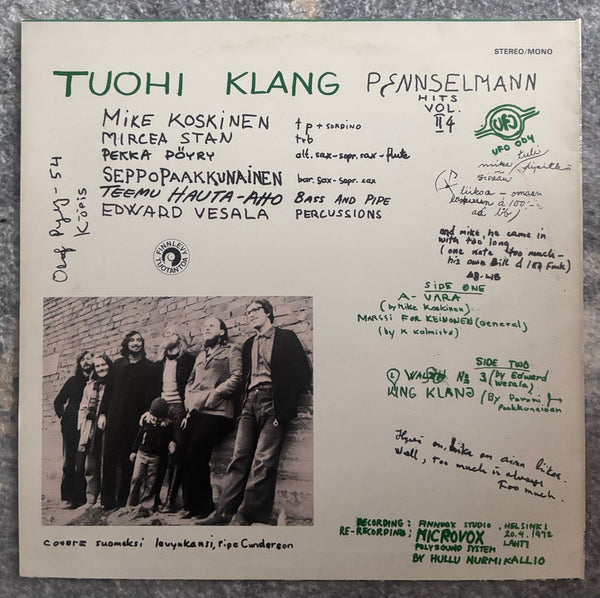 STEREO/MONO
TUOHI KLANG PENNSELMANN
HITS
VOL.
II4
UFO
UFO 004
MIKE KOSKINEN tp + SORDINO
MIRCEA STAN trb
PEKKA PÖYRY alt. sax - sopr. sax - flute
SEPPO PAAKKUNAINEN bar. sax - sopr. sax
TEEMU HAUTA-AHO BASS AND PIPE
EDWARD VESALA PERCUSSIONS
54
Köpis
FINNLEVY
TUOTANTOA
tuli
mike
sisään
liikaa - omaan
laskuun á 100:-
and mike, he came in
with too long
(one note too much -
his own Bill á 100 Fmk)
SIDE ONE
A - VARA
(by Mike Koskinen)
MARSSI FOR KEINONEN (General)
(by K Kalmisto)
SIDE TWO
WALZ No 3 (by Edward
Vesala)
KING KLANG (By Paroni
Paakkunainen
Hyvä on, liika on aina liikaa.
Well, too much is always
too much.
RECORDING: FINNVOX STUDIO, HELSINKI
RE-RECORDING: MICROVOX 20.4.1972
POLYSOUND SYSTEM LAHTI
BY HULLU NURMIKALLIO
COVER: suomeksi levynkansi, ripe Gunderson